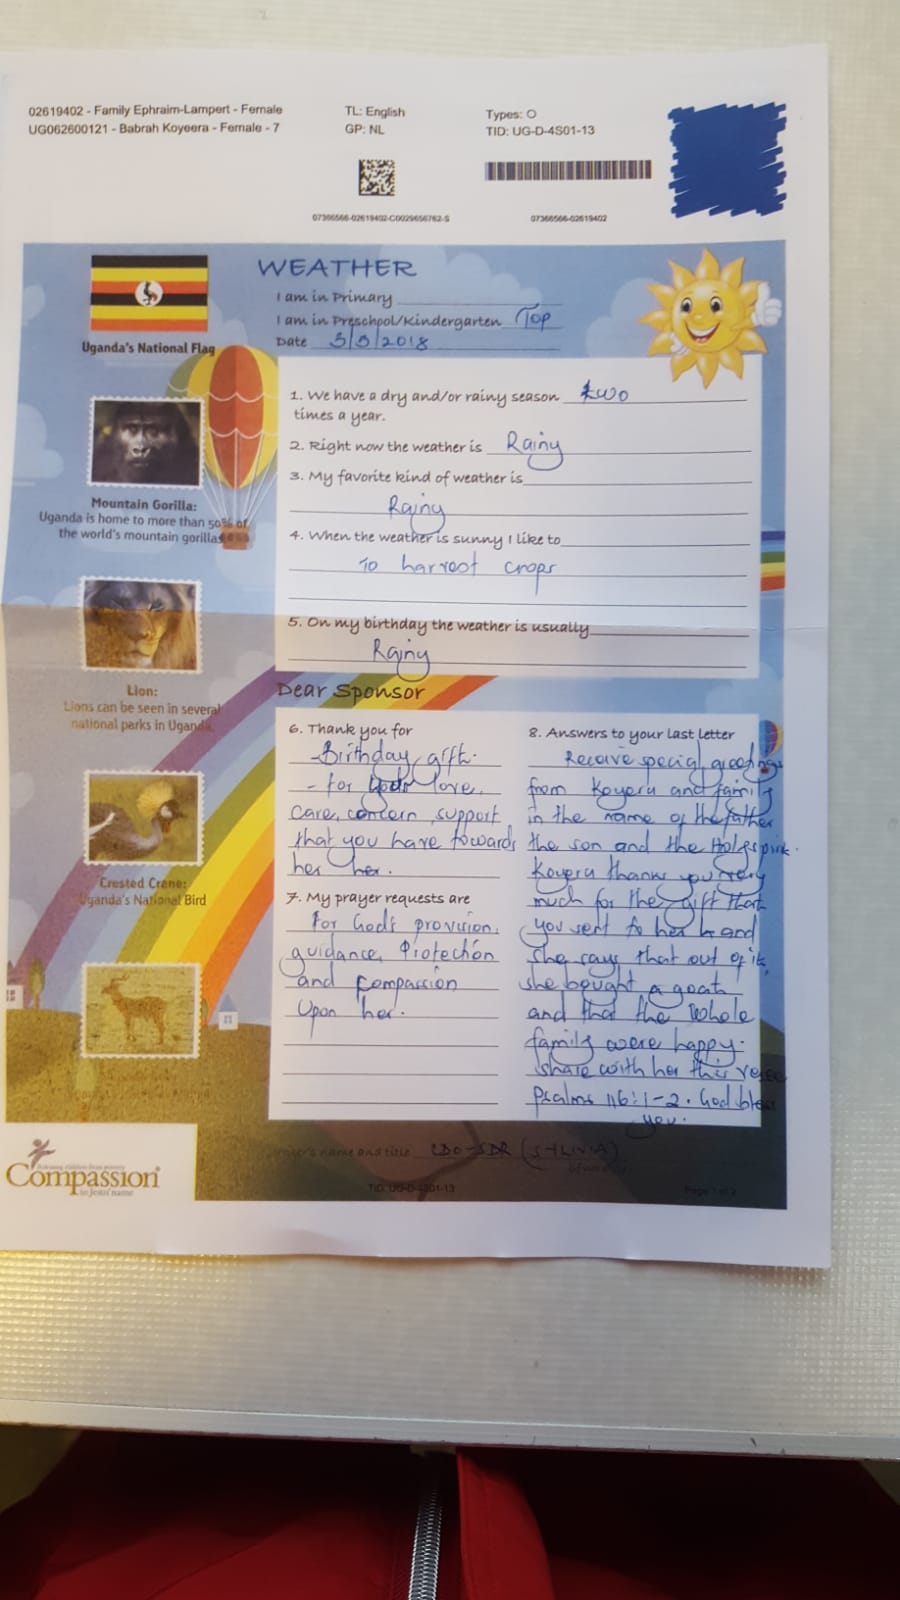 02619402 - Family Ephraim-Lampert - Female
UG062600121 - Babrah Koyeera - Female - 7
TL: English
GP: NL
Types: O
TID: UG-D-4S01-13
07366566-02619402-C0029656762-S
07366566-02619402
WEATHER
I am in Primary
I am in Preschool/Kindergarten Top
Date 3/3/2018
Uganda's National Flag
Mountain Gorilla:
Uganda is home to more than 50% of
the world's mountain gorillas
Lion:
Lions can be seen in several
national parks in Uganda.
Crested Crane:
Uganda's National Bird
1. We have a dry and/or rainy season two
times a year.
2. Right now the weather is Rainy
3. My favorite kind of weather is
Rainy
4. When the weather is sunny I like to
To harvest crops
5. On my birthday the weather is usually
Rainy
Dear Sponsor
6. Thank you for
- Birthday gift.
- for your love,
care, concern, support
that you have towards
her her.
7. My prayer requests are
For God's provision,
guidance, Protection
and compassion
Upon her.
8. Answers to your last letter
Receive special greetings
from Koyera and family
in the name of the father
the son and the Holy spirit.
Koyera thanks you very
much for the gift that
you sent to her and
She says that out of it,
she bought a goat
and that the whole
family were happy.
share with her this verse
Psalms 116:1-2. God bless
you.
name and title CDO-SDR (SYLIVIA)
Compassion
in Jesus' name
TID: UG-D-4S01-13
Page 1 of 2